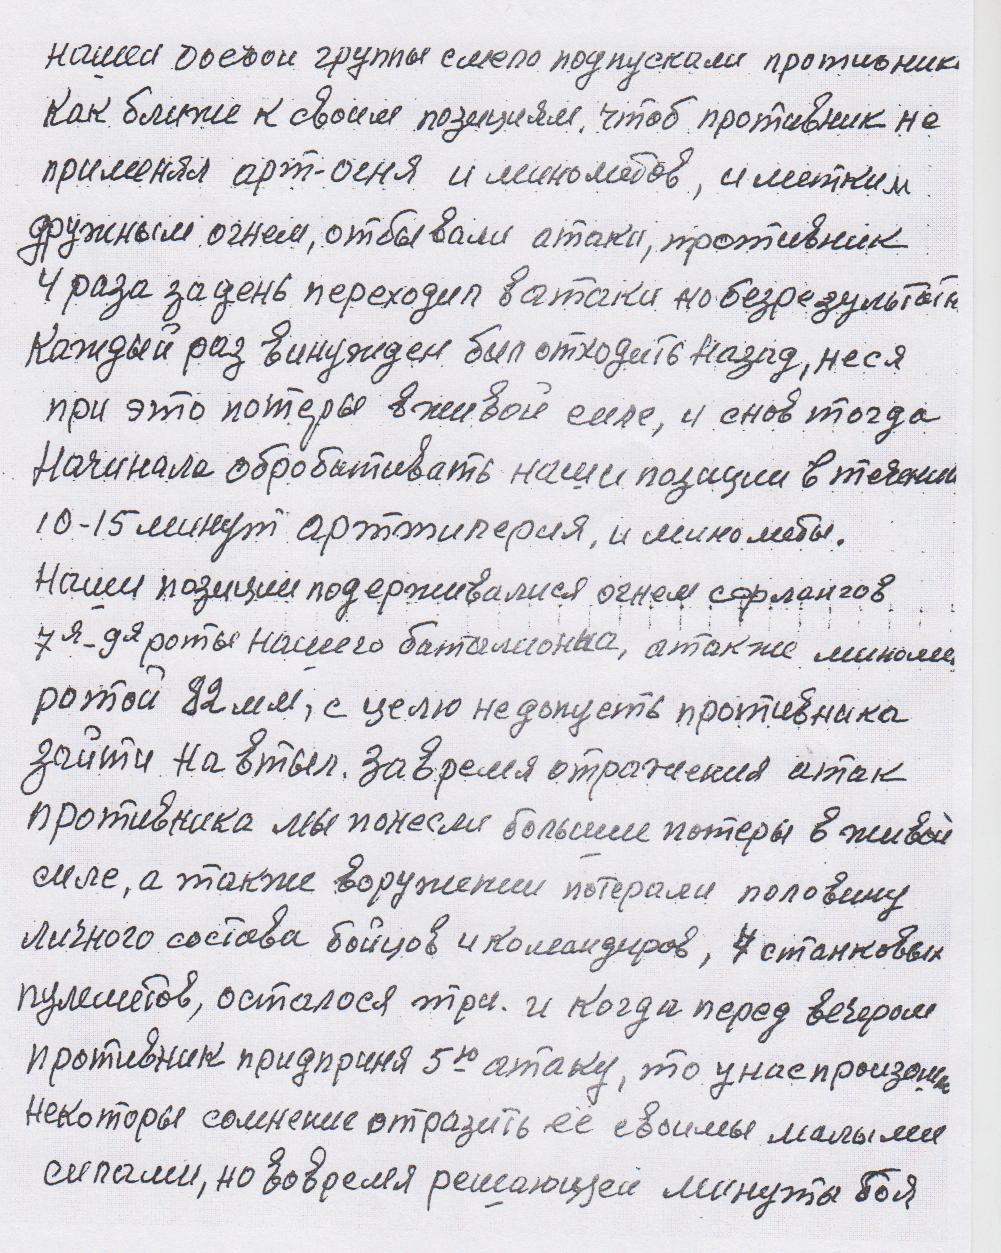 нашей боевой группы смело подпускали противник
как ближе к своим позициям, чтоб противник не
применял арт-огня и минометов, и метким
дружным огнем, отбывали атаки, противник
4 раза за день переходил в атаки но безрезультатн
Каждый раз винужден был отходить назад, неся
при это потеры в живой силе, и снов тогда
Начинала обробативать наши позиции в течении
10-15 минут арттилерия, и минометы.
Наши позиции подерживалися огнем с флангов
7я-9я роты нашего батальонна, а также миноме
ротой 82 мм, с целю не допусть противника
зайти на втыл. За время отражения атак
противника мы понесли большие потеры в живой
силе, а также воружении потерали половину
личного состава бойцов и командиров, 7 станковых
пулеметов, осталося три. и когда перед вечером
противник придприня 5ю атаку, то у нас произош
некоторы сомнение отразить её своимы малыми
силами, но вовремя решающей минуты боя